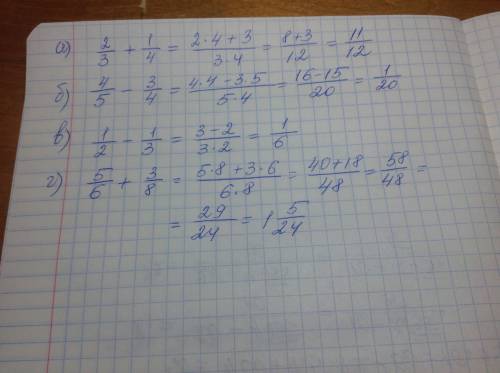 а) 2/3 + 1/4 = (2·4+3)/(3·4) = (8+3)/12 = 11/12
б) 4/5 − 3/4 = (4·4−3·5)/(5·4) = (16−15)/20 = 1/20
в) 1/2 − 1/3 = (3−2)/(3·2) = 1/6
г) 5/6 + 3/8 = (5·8+3·6)/(6·8) = (40+18)/48 = 58/48 =
= 29/24 = 1 5/24